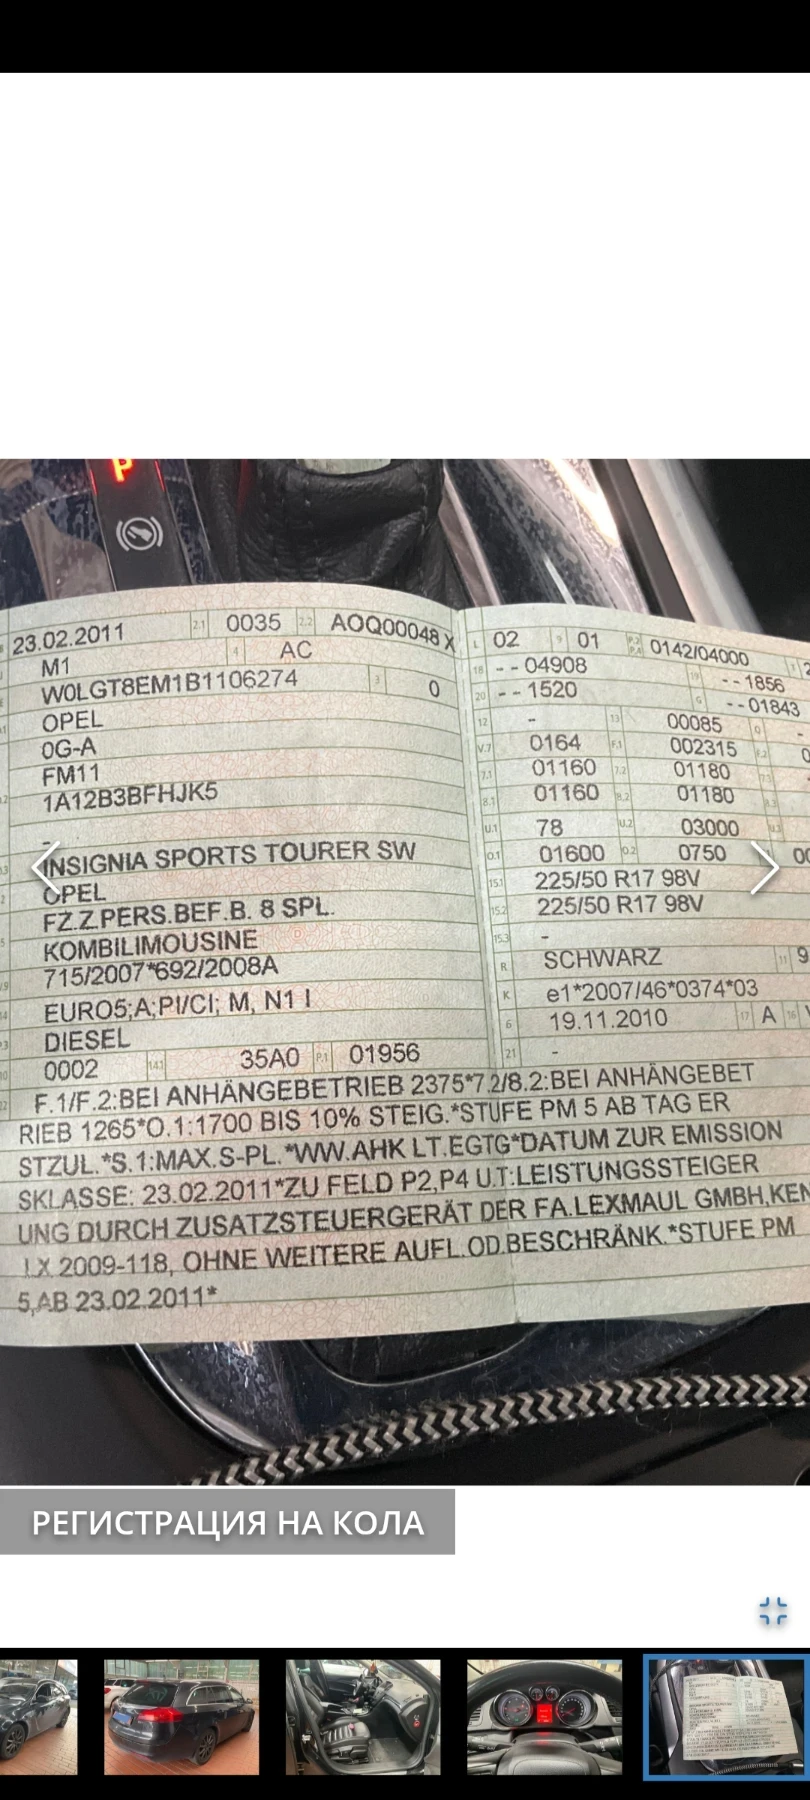 P
23.02.2011 2.1 0035 2.2 AOQ00048 X
M1 4 AC
W0LGT8EM1B1106274 3 0
OPEL
0G-A
FM11
1A12B3BFHJK5
-
INSIGNIA SPORTS TOURER SW
OPEL
FZ.Z.PERS.BEF.B. 8 SPL.
KOMBILIMOUSINE
715/2007*692/2008A
EURO5;A;PI/CI; M, N1 I
DIESEL
0002 14.1 35A0 P.1 01956
L 02 9 01 P.2 P.4 0142/04000
18 --04908 19 --1856
20 --1520 G --01843
12 - 13 00085 Q -
V.7 0164 F.1 002315 F.2 0
7.1 01160 7.2 01180
8.1 01160 8.2 01180 8.3
U.1 78 U.2 03000 U.3
O.1 01600 O.2 0750 00
15.1 225/50 R17 98V
15.2 225/50 R17 98V
15.3 -
R SCHWARZ 11 9
K e1*2007/46*0374*03
6 19.11.2010 17 A 16
21 -
F.1/F.2:BEI ANHÄNGEBETRIEB 2375*7.2/8.2:BEI ANHÄNGEBET
RIEB 1265*O.1:1700 BIS 10% STEIG.*STUFE PM 5 AB TAG ER
STZUL.*S.1:MAX.S-PL.*WW.AHK LT.EGTG*DATUM ZUR EMISSION
SKLASSE: 23.02.2011*ZU FELD P2,P4 U.T:LEISTUNGSSTEIGER
UNG DURCH ZUSATZSTEUERGERÄT DER FA.LEXMAUL GMBH,KEN
LX 2009-118, OHNE WEITERE AUFL.OD.BESCHRÄNK.*STUFE PM
5,AB 23.02.2011*
РЕГИСТРАЦИЯ НА КОЛА